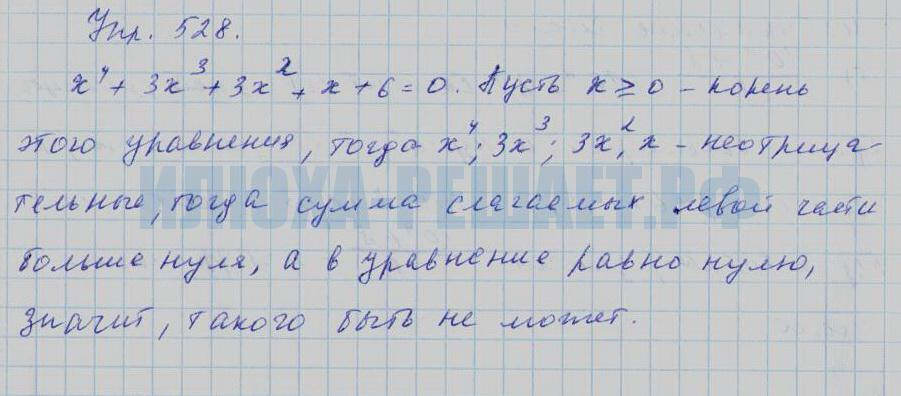 Упр. 528.
x⁴ + 3x³ + 3x² + x + 6 = 0. Пусть x ≥ 0 – корень
этого уравнения, тогда x⁴; 3x³; 3x², x – неотрица-
тельные, тогда сумма слагаемых левой части
ИЛЮХА-РЕШАЕТ.РФ
больше нуля, а в уравнение равно нулю,
значит, такого быть не может.